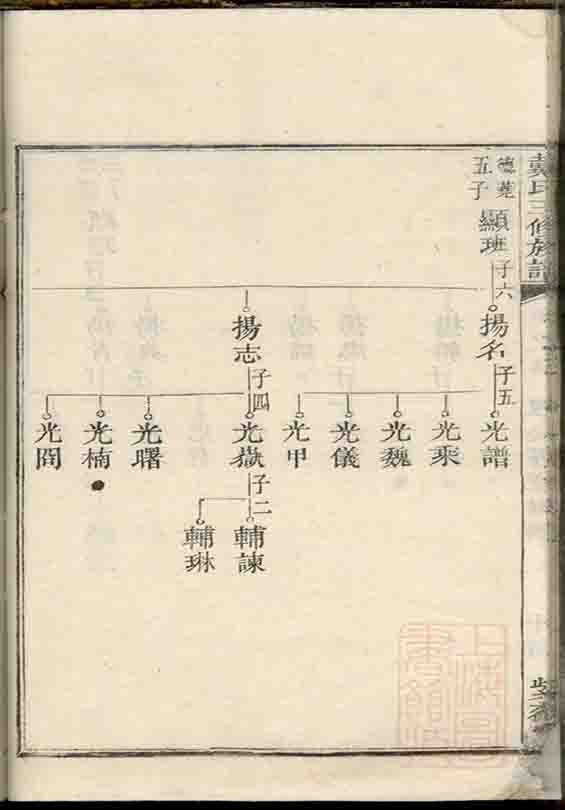 戴氏三修族譜
德菀
五子
顯班
子六
揚名
子五
光譜
光乘
光魏
光儀
光甲
揚志
子四
光嶽
子二
輔諫
輔琳
光曙
光楠
光閻